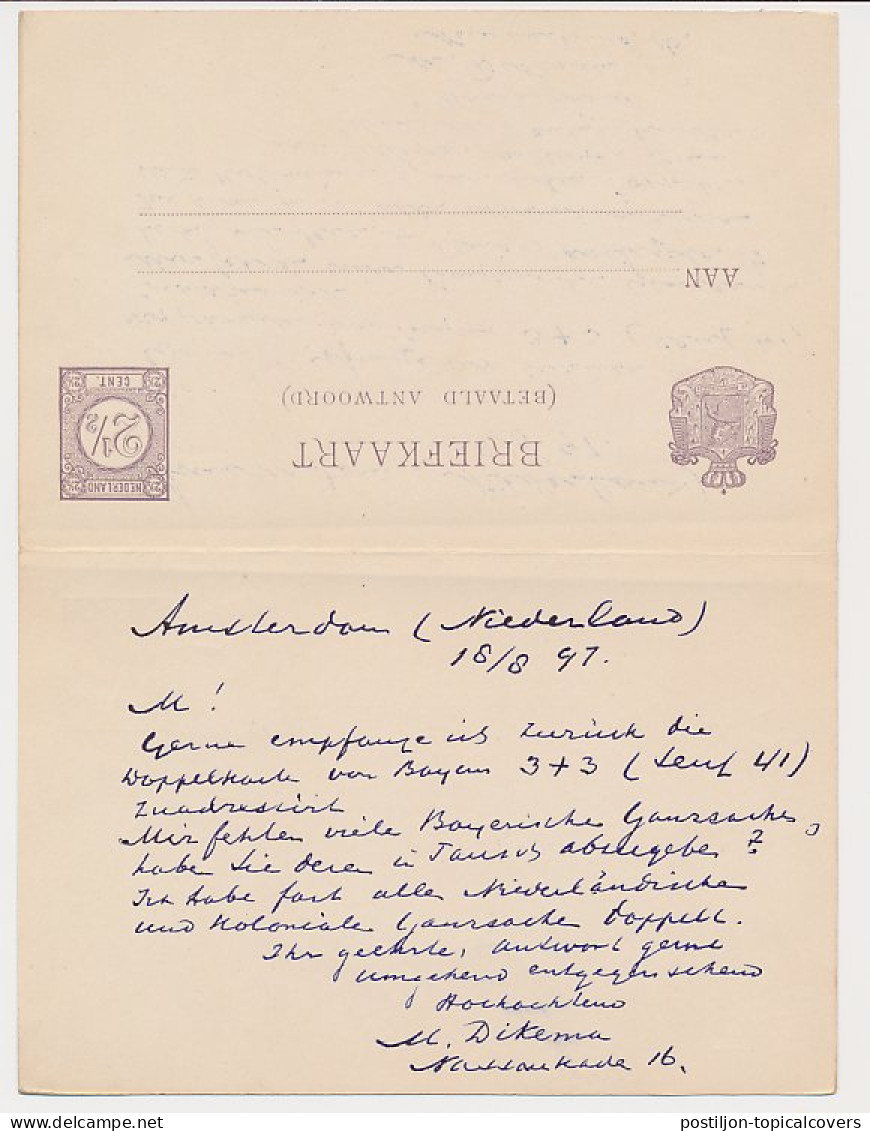 AAN
(BETAALD ANTWOORD)
BRIEFKAART
NEDERLAND
2½
CENT.
Amsterdam (Niederland)
18/8 97.
M!
Gerne empfange ich zurück die
Doppelkarte von Bayern 3+3 (Senf 41)
zuadressirt
Mir fehlen viele Bayerische Ganzsachen,
haben Sie deren in Tausch abzugeben?
Ich habe fast alle Niederländische
und Koloniale Ganzsache doppelt.
Ihr geehrte, antwort gerne
umgehend entgegensehend
Hochachtend
M. Dikema
Nassaukade 16.
postiljon-topicalcovers